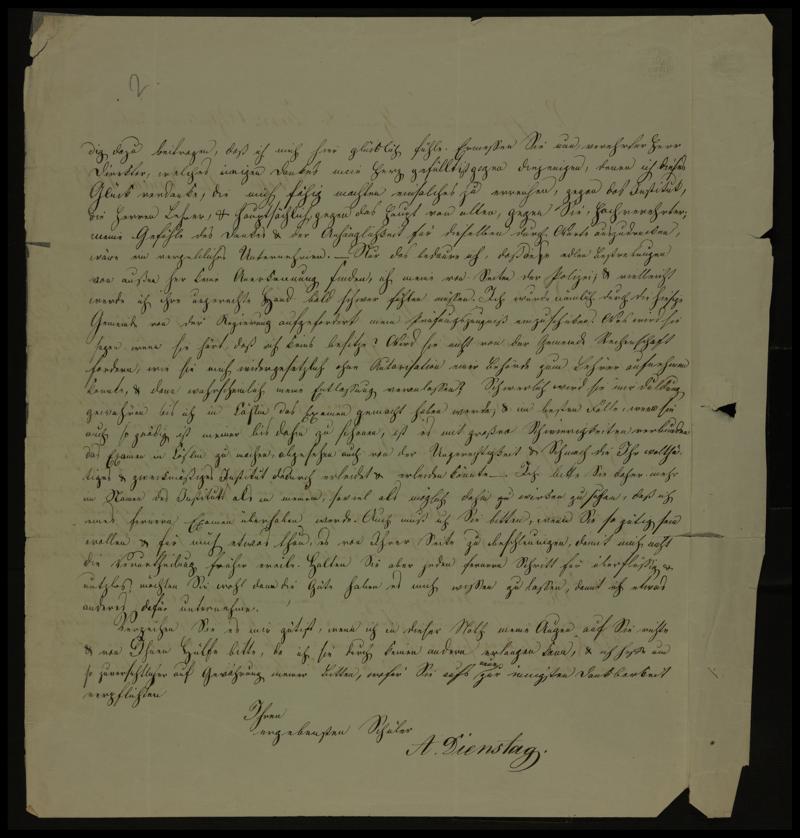 2
dig dazu beitragen, daß ich mich hier glücklich fühle. Ermessen Sie nun, verehrter Herr
Direktor, welches innigen Dankes mein Herz gefüllt ist gegen diejenigen, denen ich dieses
Glück verdanke, die mich fähig machten ein solches zu erreichen, gegen das Institut,
die Herren Lehrer, & hauptsächlich gegen das Haupt von allen, gegen Sie. Hochverehrter,
meine Gefühle des Dankes & der Anhänglichkeit für dieselben durch Worte auszudrücken,
wäre ein vergebliches Unternehmen. — Nur das bedaure ich, daß diese edlen Bestrebungen
von außen her keine Anerkennung finden, ich meine von Seiten der Polizei, & vielleicht
werde ich ihre ungerechte Hand bald schwer fühlen müssen. Ich wurde nämlich durch die hiesige
Gemeinde von der Regierung aufgefordert mein Prüfungszeugniß einzuschicken. Was wird sie
sagen wenn sie hört, daß ich keins besitze? Wird sie nicht von der Gemeinde Rechenschaft
fordern, wie sie mich widergesetzlich ohne Autorisation einer Behörde zum Lehrer aufnehmen
konnte, & dann wahrscheinlich meine Entlassung veranlassen? Schwerlich wird sie mir Duldung
gewähren bis ich in das Examen gemacht haben werde, & im besten Falle, wenn sie
auch so gnädig ist meiner bis dahin zu schonen, ist es mit großen Schwierigkeiten verbunden
das Examen in zu machen, abgesehen auch von der Ungerechtigkeit & Schmach die Ihr wohlthä-
tiges & zweckmäßiges Institut dadurch erleidet & erleiden könnte. — Ich bitte Sie daher mehr
im Namen des Instituts als in meinem, soviel als möglich dahin zu wirken zu suchen, daß ich
eines fernern Examen überhoben werde. Auch muß ich Sie bitten, wenn Sie so gütig sein
wollen & für mich etwas thun, es von Ihrer Seite zu beschleunigen, damit mich nicht
die Verurtheilung früher ereile. Halten Sie aber jeden fernern Schritt für überflüssig &
nutzlos, möchten Sie wohl dann die Güte haben es mich wissen zu lassen, damit ich etwas
anderes dafür unternehme.
Verzeihen Sie es mir gütigst, wenn ich in dieser Noth meine Augen auf Sie richte
& von Ihnen Hülfe bitte, da ich sie durch keinen andern erlangen kann, & ich hoffe um
so zuversichtlicher auf Gewährung meiner Bitten, wofür Sie aufs neue zur innigsten Dankbarkeit
verpflichten
Ihren
ergebensten Schüler
A. Dienstag.